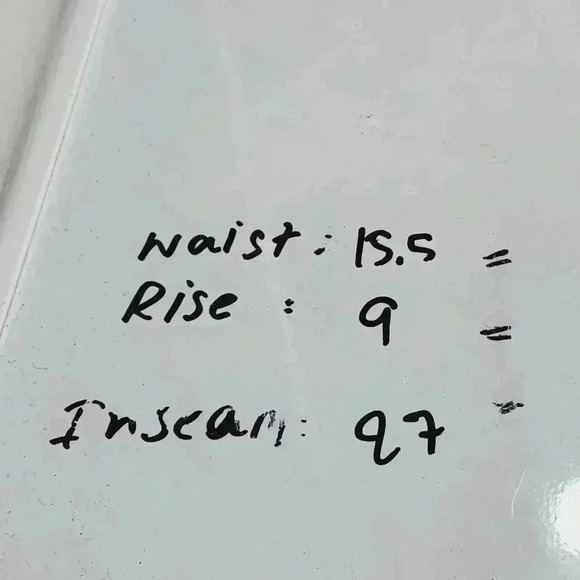 waist : 15.5 =
Rise : 9 =
Inseam : 27 =